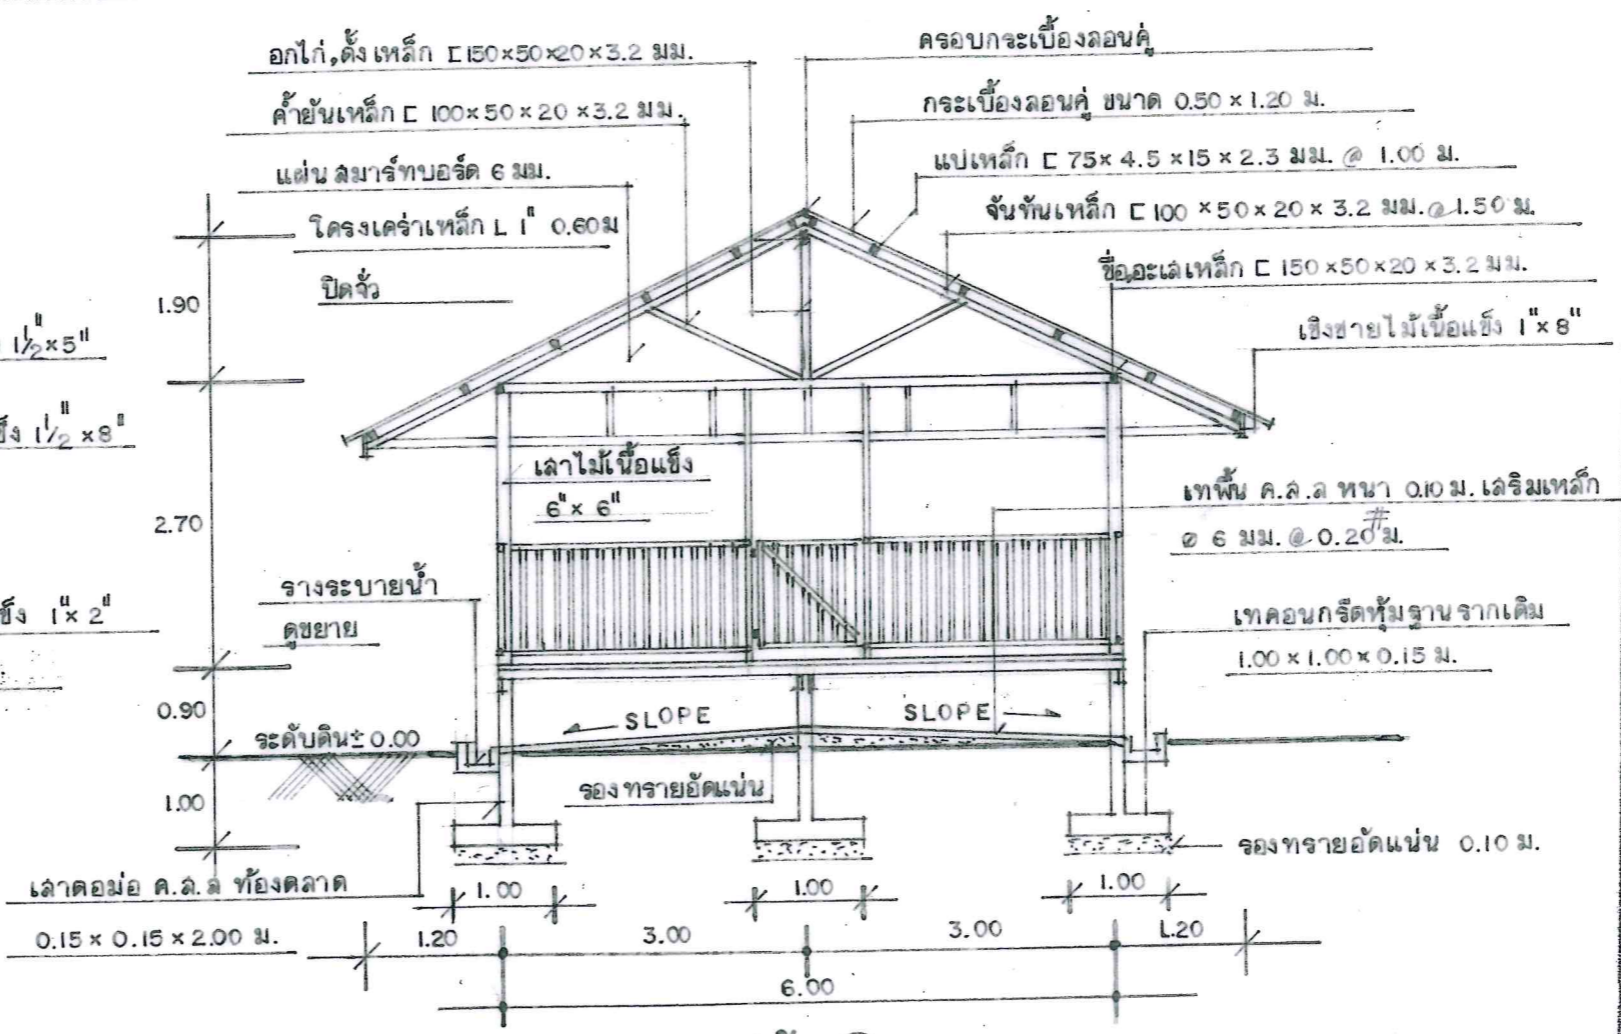 อกไก่,ดั้ง เหล็ก ⊏150×50×20×3.2 มม.
ค้ำยันเหล็ก ⊏ 100×50×20×3.2 มม.
แผ่นสมาร์ทบอร์ด 6 มม.
โครงเคร่าเหล็ก L 1" 0.60ม
ปิดจั่ว
ครอบกระเบื้องลอนคู่
กระเบื้องลอนคู่ ขนาด 0.50 × 1.20 ม.
แปเหล็ก ⊏ 75× 4.5 ×15 × 2.3 มม. @ 1.00 ม.
จันทันเหล็ก ⊏ 100 ×50× 20 × 3.2 มม.@1.50 ม.
ขื่อ,อะเสเหล็ก ⊏ 150 ×50×20 ×3.2 มม.
เชิงชายไม้เนื้อแข็ง 1"× 8"
1.90
1½"×5"
แข็ง 1½" ×8"
เสาไม้เนื้อแข็ง
6"× 6"
เทพื้น ค.ส.ล หนา 0.10 ม. เสริมเหล็ก
ø 6 มม. @ 0.20 # ม.
2.70
รางระบายน้ำ
ดูขยาย
แข็ง 1"× 2"
เทคอนกรีตหุ้มฐานรากเดิม
1.00 × 1.00 × 0.15 ม.
0.90
ระดับดิน± 0.00
SLOPE
SLOPE
1.00
รองทรายอัดแน่น
รองทรายอัดแน่น 0.10 ม.
เสาตอม่อ ค.ส.ล ท้องตลาด
0.15 × 0.15 × 2.00 ม.
1.00
1.00
1.00
1.20
3.00
3.00
1.20
6.00